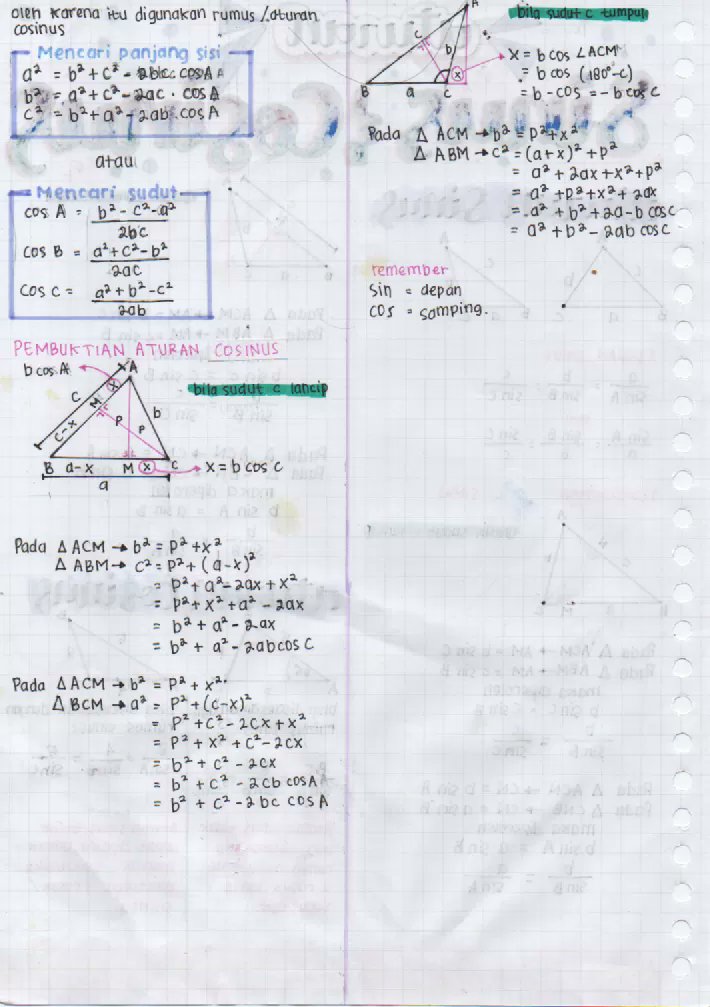 oleh karena itu digunakan rumus /aturan
cosinus
Mencari panjang sisi
a² = b² + c² - 2bc cos A A
b² = a² + c² - 2ac . cos A
c² = b² + a² - 2ab . cos A
atau
Mencari sudut
cos A = b² - c² - a² / 2bc
cos B = a² + c² - b² / 2ac
cos C = a² + b² - c² / 2ab
PEMBUKTIAN ATURAN COSINUS
b cos A
bila sudut c lancip
A
x
M
c
c-x
b
P
P
B
a-x
M
x
C
x = b cos c
a
Pada △ ACM → b² = p² + x²
△ ABM → c² = p² + (a-x)²
= p² + a² - 2ax + x²
= p² + x² + a² - 2ax
= b² + a² - 2ax
= b² + a² - 2ab cos C
Pada △ ACM → b² = p² + x²
△ BCM → a² = p² + (c-x)²
= p² + c² - 2cx + x²
= p² + x² + c² - 2cx
= b² + c² - 2cx
= b² + c² - 2cb cos A
= b² + c² - 2bc cos A
bila sudut c tumpul
A
c
b
x
B
a
C
x = b cos ∠ACM
= b cos (180°-c)
= b - cos = -b cos c
Pada △ ACM → b² = p² + x²
△ ABM → c² = (a+x)² + p²
= a² + 2ax + x² + p²
= a² + p² + x² + 2ax
= a² + b² + 2a - b cos c
= a² + b² - 2ab cos c
remember
sin = depan
cos = samping.